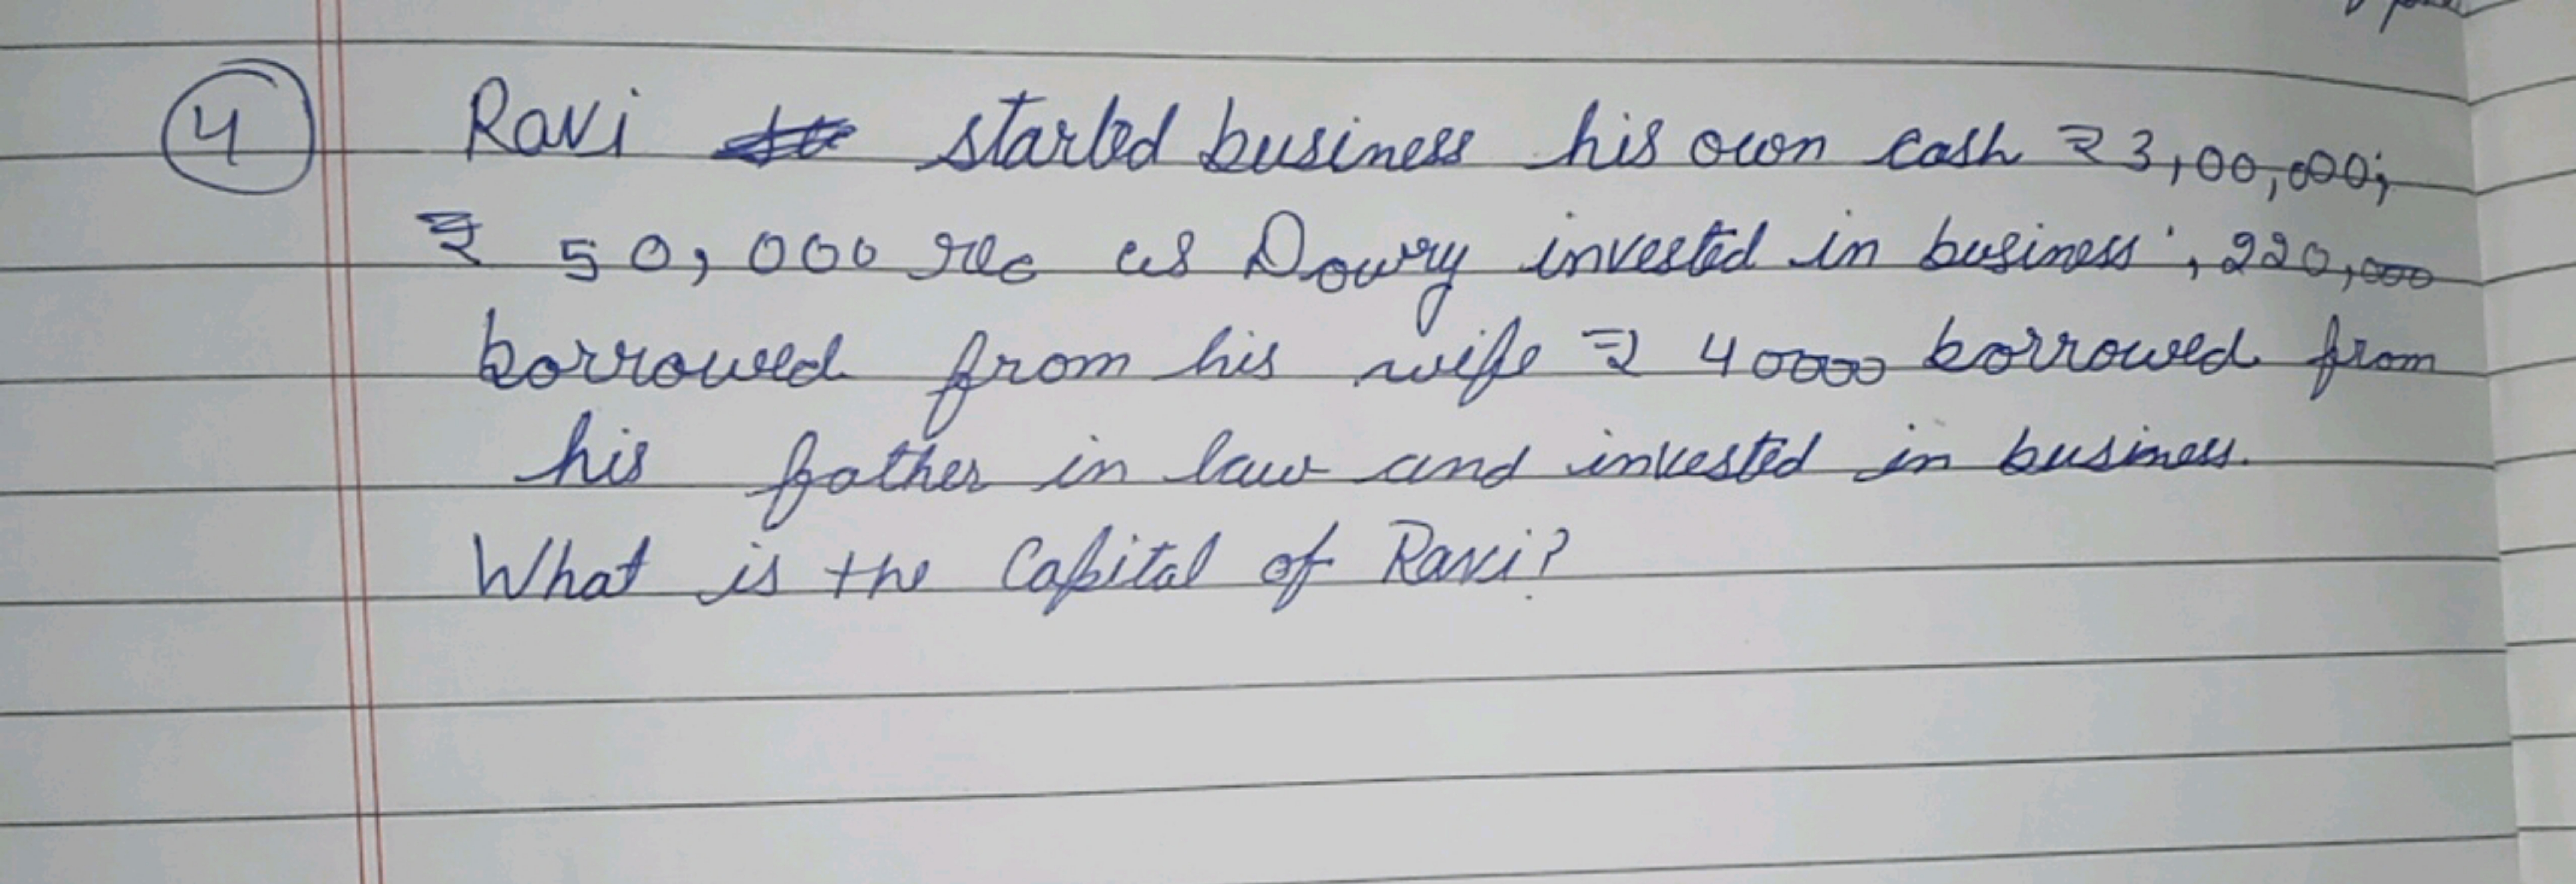 4 Ravi started business his own cash ₹3,00,000;
₹ 50,000 rec as Dowry invested in business ; ₹20,000
borrowed from his wife ₹ 40000 borrowed from
his father in law and invested in business.
What is the Capital of Ravi?